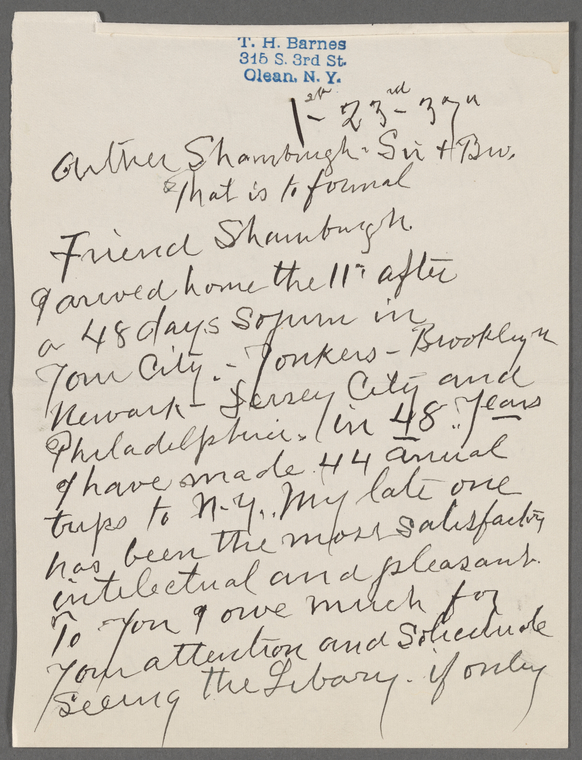 T. H. Barnes
315 S. 3rd St.
Olean, N. Y.
1st - 23rd - 37
Arther Shamburgh - Sir + Bro.
That is to formal
Friend Shamburgh.
I arived home the 11th after
a 48 days Sojurn in
Your City. - Yonkers - Brooklyn
Newark - Jersey City and
Philadelphia. in 48 Years
I have made 44 anual
trips to N.Y. My late one
has been the most Satisfactry
intelectual and pleasant.
To You I owe much for
Your attention and
Seeing the Libary. if only